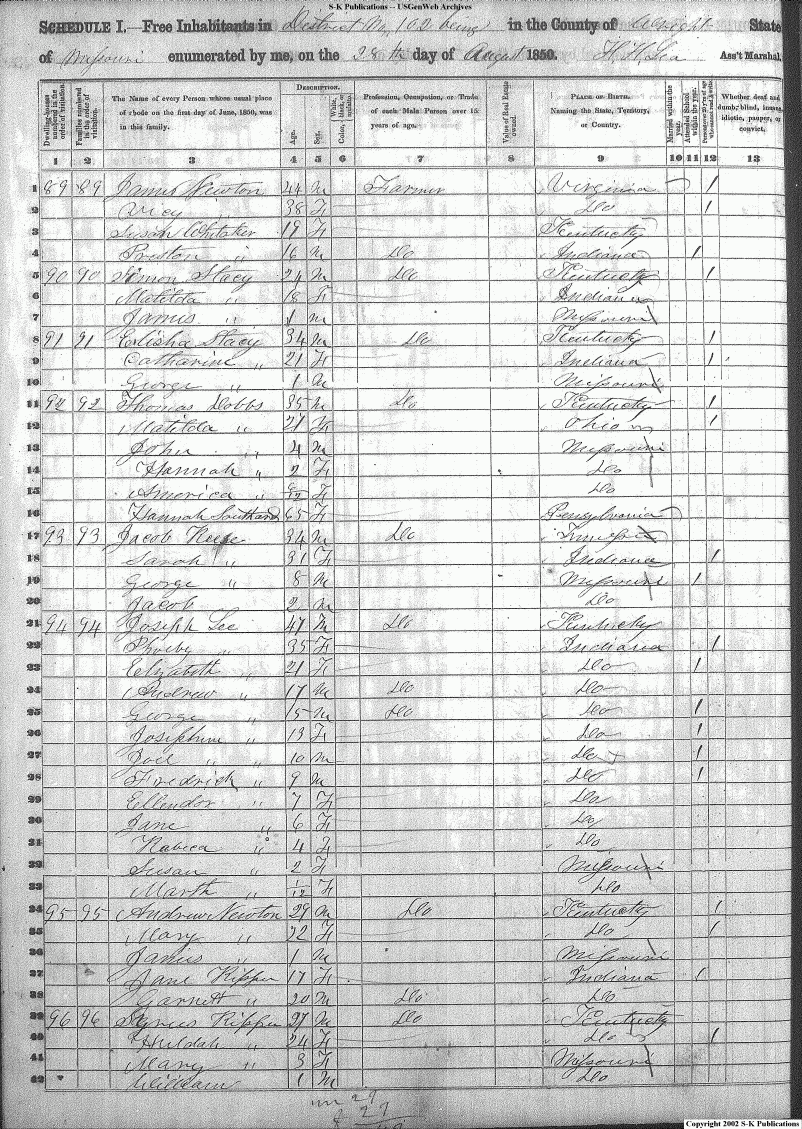 S-K Publications -- USGenWeb Archives
SCHEDULE I.—Free Inhabitants in District No. 102 being in the County of Wright State
of Missouri enumerated by me, on the 28th day of August 1850. Ass't Marshal.
Dwelling-houses numbered in the order of visitation.
Families numbered in the order of visitation.
The Name of every Person whose usual place of abode on the first day of June, 1850, was in this family.
DESCRIPTION.
Age.
Sex.
Color, White, black, or mulatto.
Profession, Occupation, or Trade of each Male Person over 15 years of age.
Value of Real Estate owned.
PLACE OF BIRTH. Naming the State, Territory, or Country.
Married within the year.
Attended School within the year.
Whether deaf and dumb, blind, insane, idiotic, pauper, or convict.
1 2 3 4 5 6 7 8 9 10 11 12 13
1 89 89 James Newton 44 M Farmer Virginia 1
2 Vicy 38 F Do 1
3 Susan Whitaker 19 F Kentucky
4 Preston " 16 M Do Indiana 1
5 90 90 Simon Stacy 24 M Do Kentucky 1
6 Matilda " 18 F Indiana
7 James " 1 M Missouri
8 91 91 Elisha Stacy 34 M Do Kentucky 1
9 Catharine " 21 F Indiana 1
10 George " 1 M Missouri
11 92 92 Thomas Dobbs 35 M Do Kentucky 1
12 Matilda " 21 F Ohio 1
13 John " 4 M Missouri
14 Hannah " 2 F Do
15 America " F Do
16 Hannah Southard 65 F Pensylvania
17 93 93 Jacob 34 M Do
18 Sarah " 31 F Indiana 1
19 George " 8 M Missouri 1
20 Jacob 2 M Do
21 94 94 Joseph Lee 47 M Do Kentucky
22 Phoeby " 35 F Indiana 1
23 Elizabeth " 21 F Do 1
24 Andrew " 17 M Do Do
25 George " 15 M Do Do 1
26 Josephine " 13 F Do 1
27 Joel " 10 M Do 1
28 Fredrick " 9 M Do 1
29 Ellendor " 7 F Do
30 Jane " 6 F Do
31 Rabeca " 4 F Do
32 Susan " 2 F Missouri
33 Marth " 1/12 F Do
34 95 95 Andrew Newton 29 M Do Kentucky 1
35 Mary " 22 F Do 1
36 James " 1 M Missouri
37 Jane Ripper 17 F Indiana 1
38 Garnett " 20 M Do Do
39 96 96 Syrus Ripper 27 M Do Kentucky
40 Huldah " 24 F Do 1
41 Mary " 3 F Missouri
42 William 1 M Do
Copyright 2002 S-K Publications